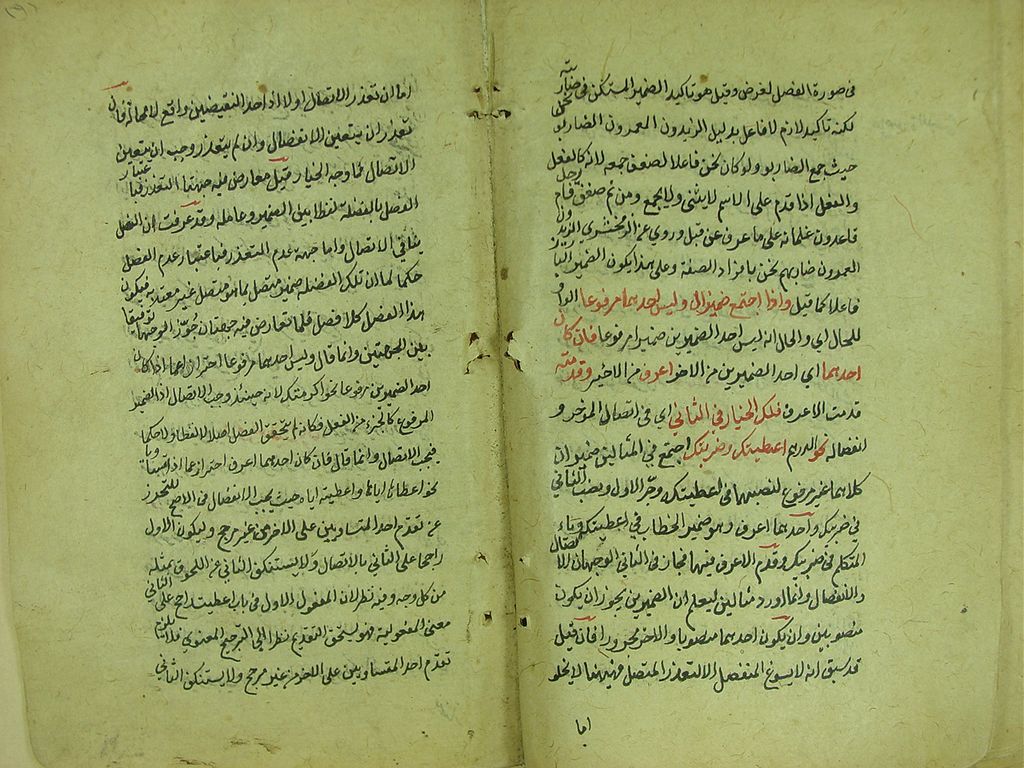 في صورة الفصل لغرض وقيل هو تاكيد الضمير المستكن في ضاربته
لكنه تاكيد لازم لا فاعل بدليل الزيدون العمرون الضاربو نحن
حيث جمع الضاربو ولو كان نحن فاعلا لضعف جمعه لانه كالفعل
والفعل اذا قدم على الاسم لا يثنى ولا يجمع ومن ثم ضعف قام رجل
قاعدون غلمانه على ما عرف عن قبل وروي عن الزمخشري الزيدون
العمرون ضاربهم نحن بافراد الصفة وعلى هذا يكون الضمير البارز
فاعلا كما قيل واذا اجتمع ضميران وليس احدهما مرفوعا الواو
للحال اي والحال انه ليس احد الضميرين ضميرا مرفوعا فان كان
احدهما اي احد الضميرين من الاخر اعرف من الاخير وقدمته
قدمت الاعرف فلك الخيار في الثاني اي في اتصال المؤخر و
انفصاله نحو الدرهم اعطيتكه وضربيك اجتمع في المثالين ضميران
كلاهما غير مرفوع لنصبهما في اعطيتكه وجر الاول ونصب الثاني
في ضربيك واحدهما اعرف وهو ضمير الخطاب في اعطيتكه وياء
المتكلم في ضربيك وقدم الاعرف فيهما فجاز في الثاني الوجهان الاتصال
والانفصال وانما اورد مثالين ليعلم ان الضميرين يجوز ان يكون
منصوبين وان يكون احدهما منصوبا والاخر مجرورا فان قيل
قد سبق انه لا يسوغ المنفصل الا لتعذر المتصل فههنا لا يخلو
اما
اما ان تعذر الاتصال او لا اذ احد النقيضين واقع لا محالة فان
تعذر ان يتعين الانفصال وان لم يتعذر وجب ان يتعين
الاتصال فما وجه الخيار قيل معارض فيه جهتا التعذر فباعتبار
الفصل بالفضلة لفظا بين الضمير وعامله وقد عرفت ان الفصل
ينافي الاتصال واما جهة عدم التعذر فباعتبار عدم الفصل
حكما لما ان تلك الفضلة ضمير متصل بما هو متصل غير معتد به فيكون
هذا الفصل كلا فصل فلما تعارض فيه جهتان جوز الوجهان توفيقا
بين الجهتين وانما قال وليس احدهما مرفوعا احترازا عما اذا كان
احد الضميرين مرفوعا نحو اكرمتك لانه حينئذ وجب الاتصال اذ الضمير
المرفوع كالجزء من الفعل فكانه لم يتحقق الفصل اصلا لا لفظا ولا حكما
فيجب الاتصال وانما قال فان كان احدهما اعرف احترازا عما اذا تساويا
نحو اعطاها اياها واعطيته اياه حيث يجب الانفصال في الاصح للتحرز
عن تقدم احد المتساويين على الاخر من غير مرجح وليكون الاول
راجحا على الثاني بالاتصال ولا يستنكف الثاني عن اللحوق بمثله
من كل وجه وفيه نظر لان المفعول الاول في باب اعطيت راجح على الثاني
معنى المفعولية فهو يستحق التقديم نظرا الى الترجيح المعنوي فلا يلزم
تقدم احد المتساويين على الاخر من غير مرجح ولا يستنكف الثاني